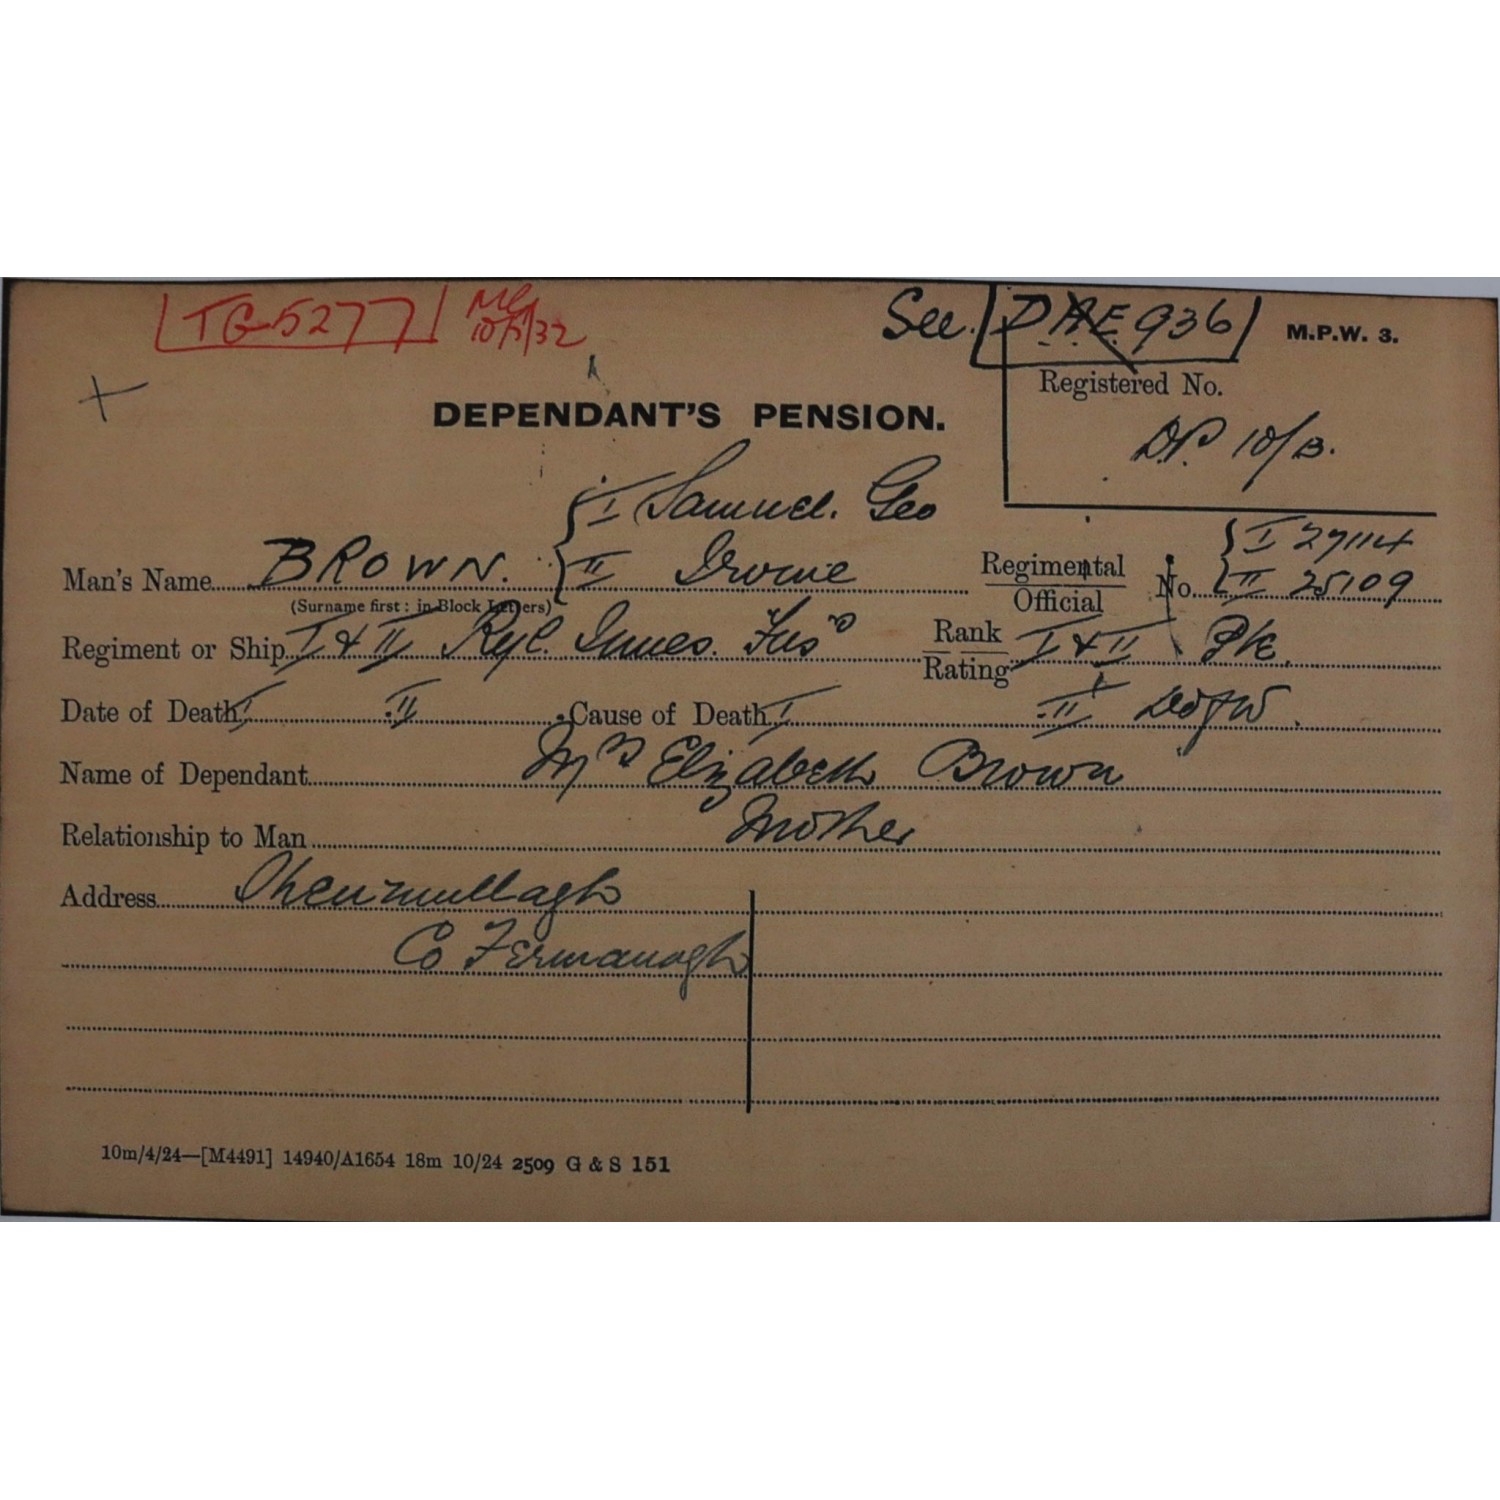 TG 5277 10/5/32 See DAE 936 M.P.W. 3.
Registered No.
DEPENDANT'S PENSION.
DP. 10/B.
I Samuel. Geo
I 27114
Man's Name BROWN. II Irvine Regimental Official No. II 25109
(Surname first: in Block Letters)
Regiment or Ship I & II Ryl. Innis. Fus Rank Rating I & II Pte
Date of Death I II Cause of Death I II DofW.
Name of Dependant Mrs Elizabeth Brown
Relationship to Man Mother
Address Shenmullagh
Co Fermanagh
10m/4/24—[M4491] 14940/A1654 18m 10/24 2509 G & S 151